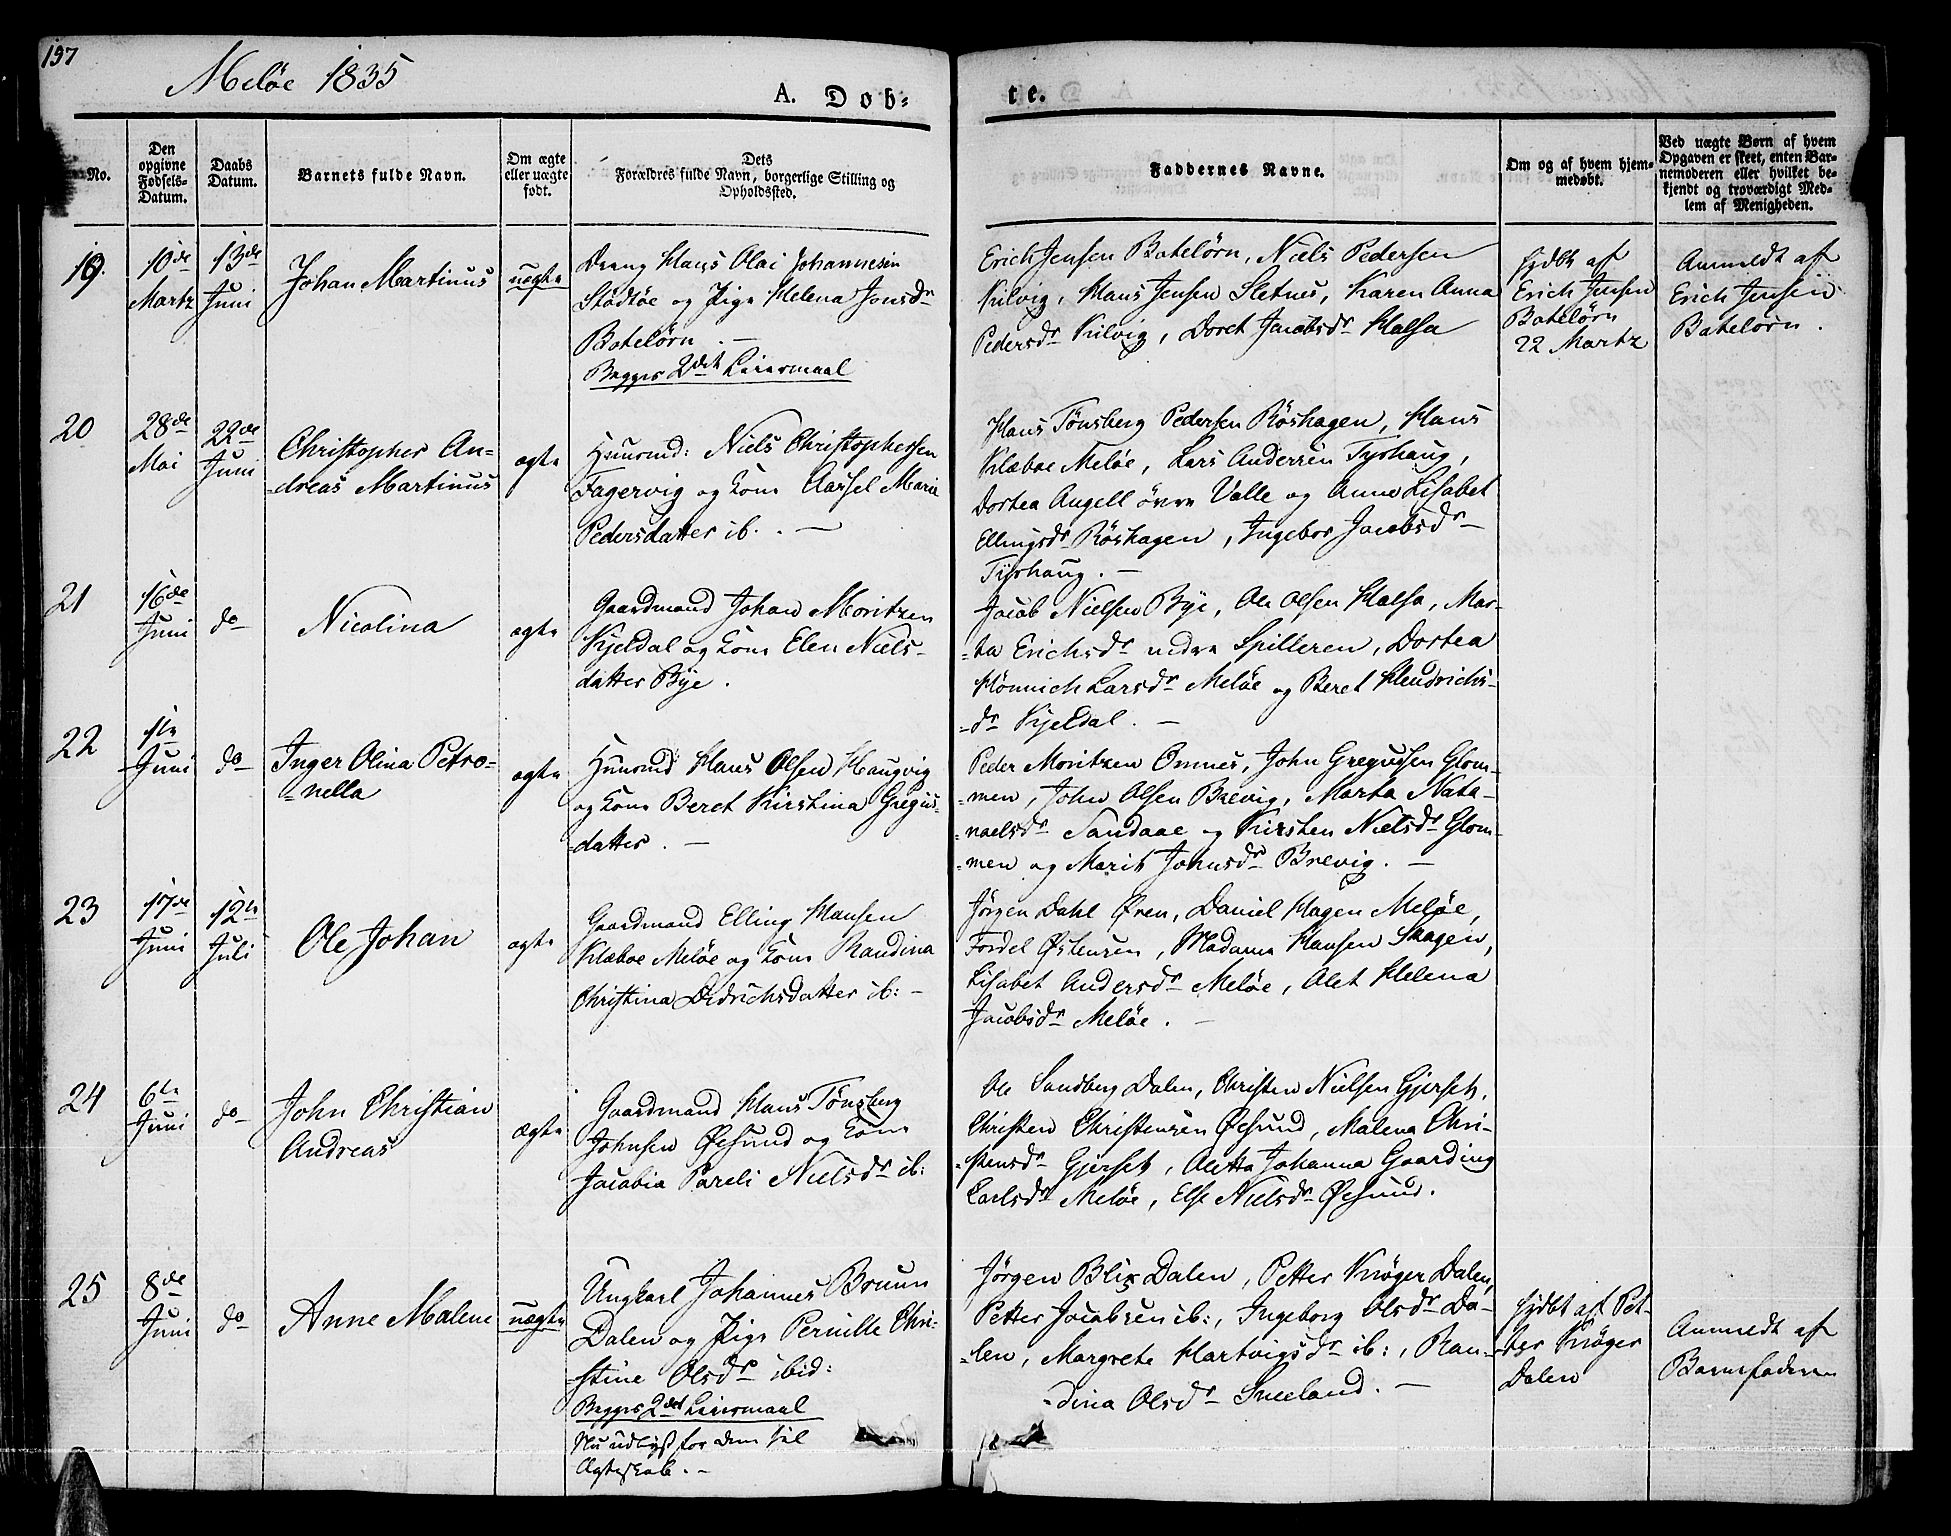 197
Meløe 1835
A. Døb-
te.
No.
Den
opgivne
Fødsels-
Datum.
Daabs
Datum.
Barnets fulde Navn.
Om ægte
eller uægte
født.
Dets
Forældres fulde Navn, borgerlige Stilling og
Opholdssted.
Faddernes Navne.
Om og af hvem hjem-
medøbt.
Ved uægte Børn af hvem
Opgaven er skeet, enten Bar-
nemoderen eller hvilket be-
kjendt og troværdigt Med-
lem af Menigheden.
19.
10de
Martz
13de
Juni
Johan Martinus
uægte
Dreng Hans Olai Johannesen
Stødtøe og Pige Helena Jonsdr
Batelörn . —
Begges 2det Leiermaal
Erich Jensen Batelörn, Niels Pedersen
Kilvig, Hans Jensen Sletnes, Karen Anna
Pedersdr Kilvig, Doret Jacobsdr Halsa
hjdbt af
Erich Jensen
Batelörn
22 Martz
Anmeldt af
Erich Jensen
Batelörn .
20
28de
Mai
22de
Juni
Christopher An-
-dreas Martinus
ægte
Huusmd: Niels Christophersen
Fagervig og Kone Aarsel Marie
Pedersdatter ib. . —
Hans Tönsberg Pedersen Röshagen, Hans
Klæboe Meløe, Lars Andersen Tyrhaug,
Dortea Angell övre Valle og Anne Lisabet
Ellingsdr Röshagen, Ingebor Jacobsdr
Tyrhaug . —
21
16de
Juni
do
Nicolina
ægte
Gaardmand Johan Moritzen
Kjeldal og Kone Elen Niels-
datter Bye .
Jacob Nielsen Bye, Ole Olsen Halsa, Mar-
-ta Erichsdr nedre Spilderen, Dortea
Hönnich Larsdr Meløe og Beret Hendrichs-
-dr Kjeldal . —
22
1te
Juni
do
Inger Olina Petro-
-nella
ægte
Huusmd Hans Olsen Haugvig
og Kone Beret Kirstina Gregus-
-datter . —
Peder Moritzen Ornes, John Gregusen Glom-
-men, John Olsen Brevig, Marta Nata-
-naelsdr Sandaae og Kirsten Nielsdr Glom-
-men og Marit Johnsdr Brevig . —
23
17de
Juni
12te
Juli
Ole Johan
ægte
Gaardmand Elling Hansen
Klæboe Meløe og Kone Randina
Christina Didrichsdatter ib: —
Jörgen Dahl Øren, Daniel Hagen Meløe,
Fordel Østensen, Madame Hansen Skagen,
Lisabet Andersdr Meløe, Alet Helena
Jacobsdr Meløe . —
24
6te
Juni
do
John Christian
Andreas
ægte
Gaardmand Hans Tönsberg
Johnsen Øesund og Kone
Jacobia Pareli Nielsdr ib:
Ole Sandberg Dalen, Christen Nielsen Gjerset,
Christen Christensen Øesund, Malena Chri-
-stensdr Gjerset, Aletta Johanna Gaarding
Carlsdr Meløe, Else Nielsdr Øesund .
25
8de
Juni
do
Anne Malene
uægte
Ungkarl Johannes Bruun
Dalen og Pige Pernille Chri-
-stine Olsdr ibid:
Begges 2det Leiermaal
Nu udlyst for dem til
Ægteskab . —
Jörgen Blix Dalen, Petter Kröger Dalen,
Petter Jacobsen ib:, Ingeborg Olsdr Da-
-len, Margrete Hartvigsdr ib:, Ran-
-dina Olsdr Sneeland . —
hjdbt af Pet-
-ter Kröger
Dalen
Anmeldt af
Barnefaderen